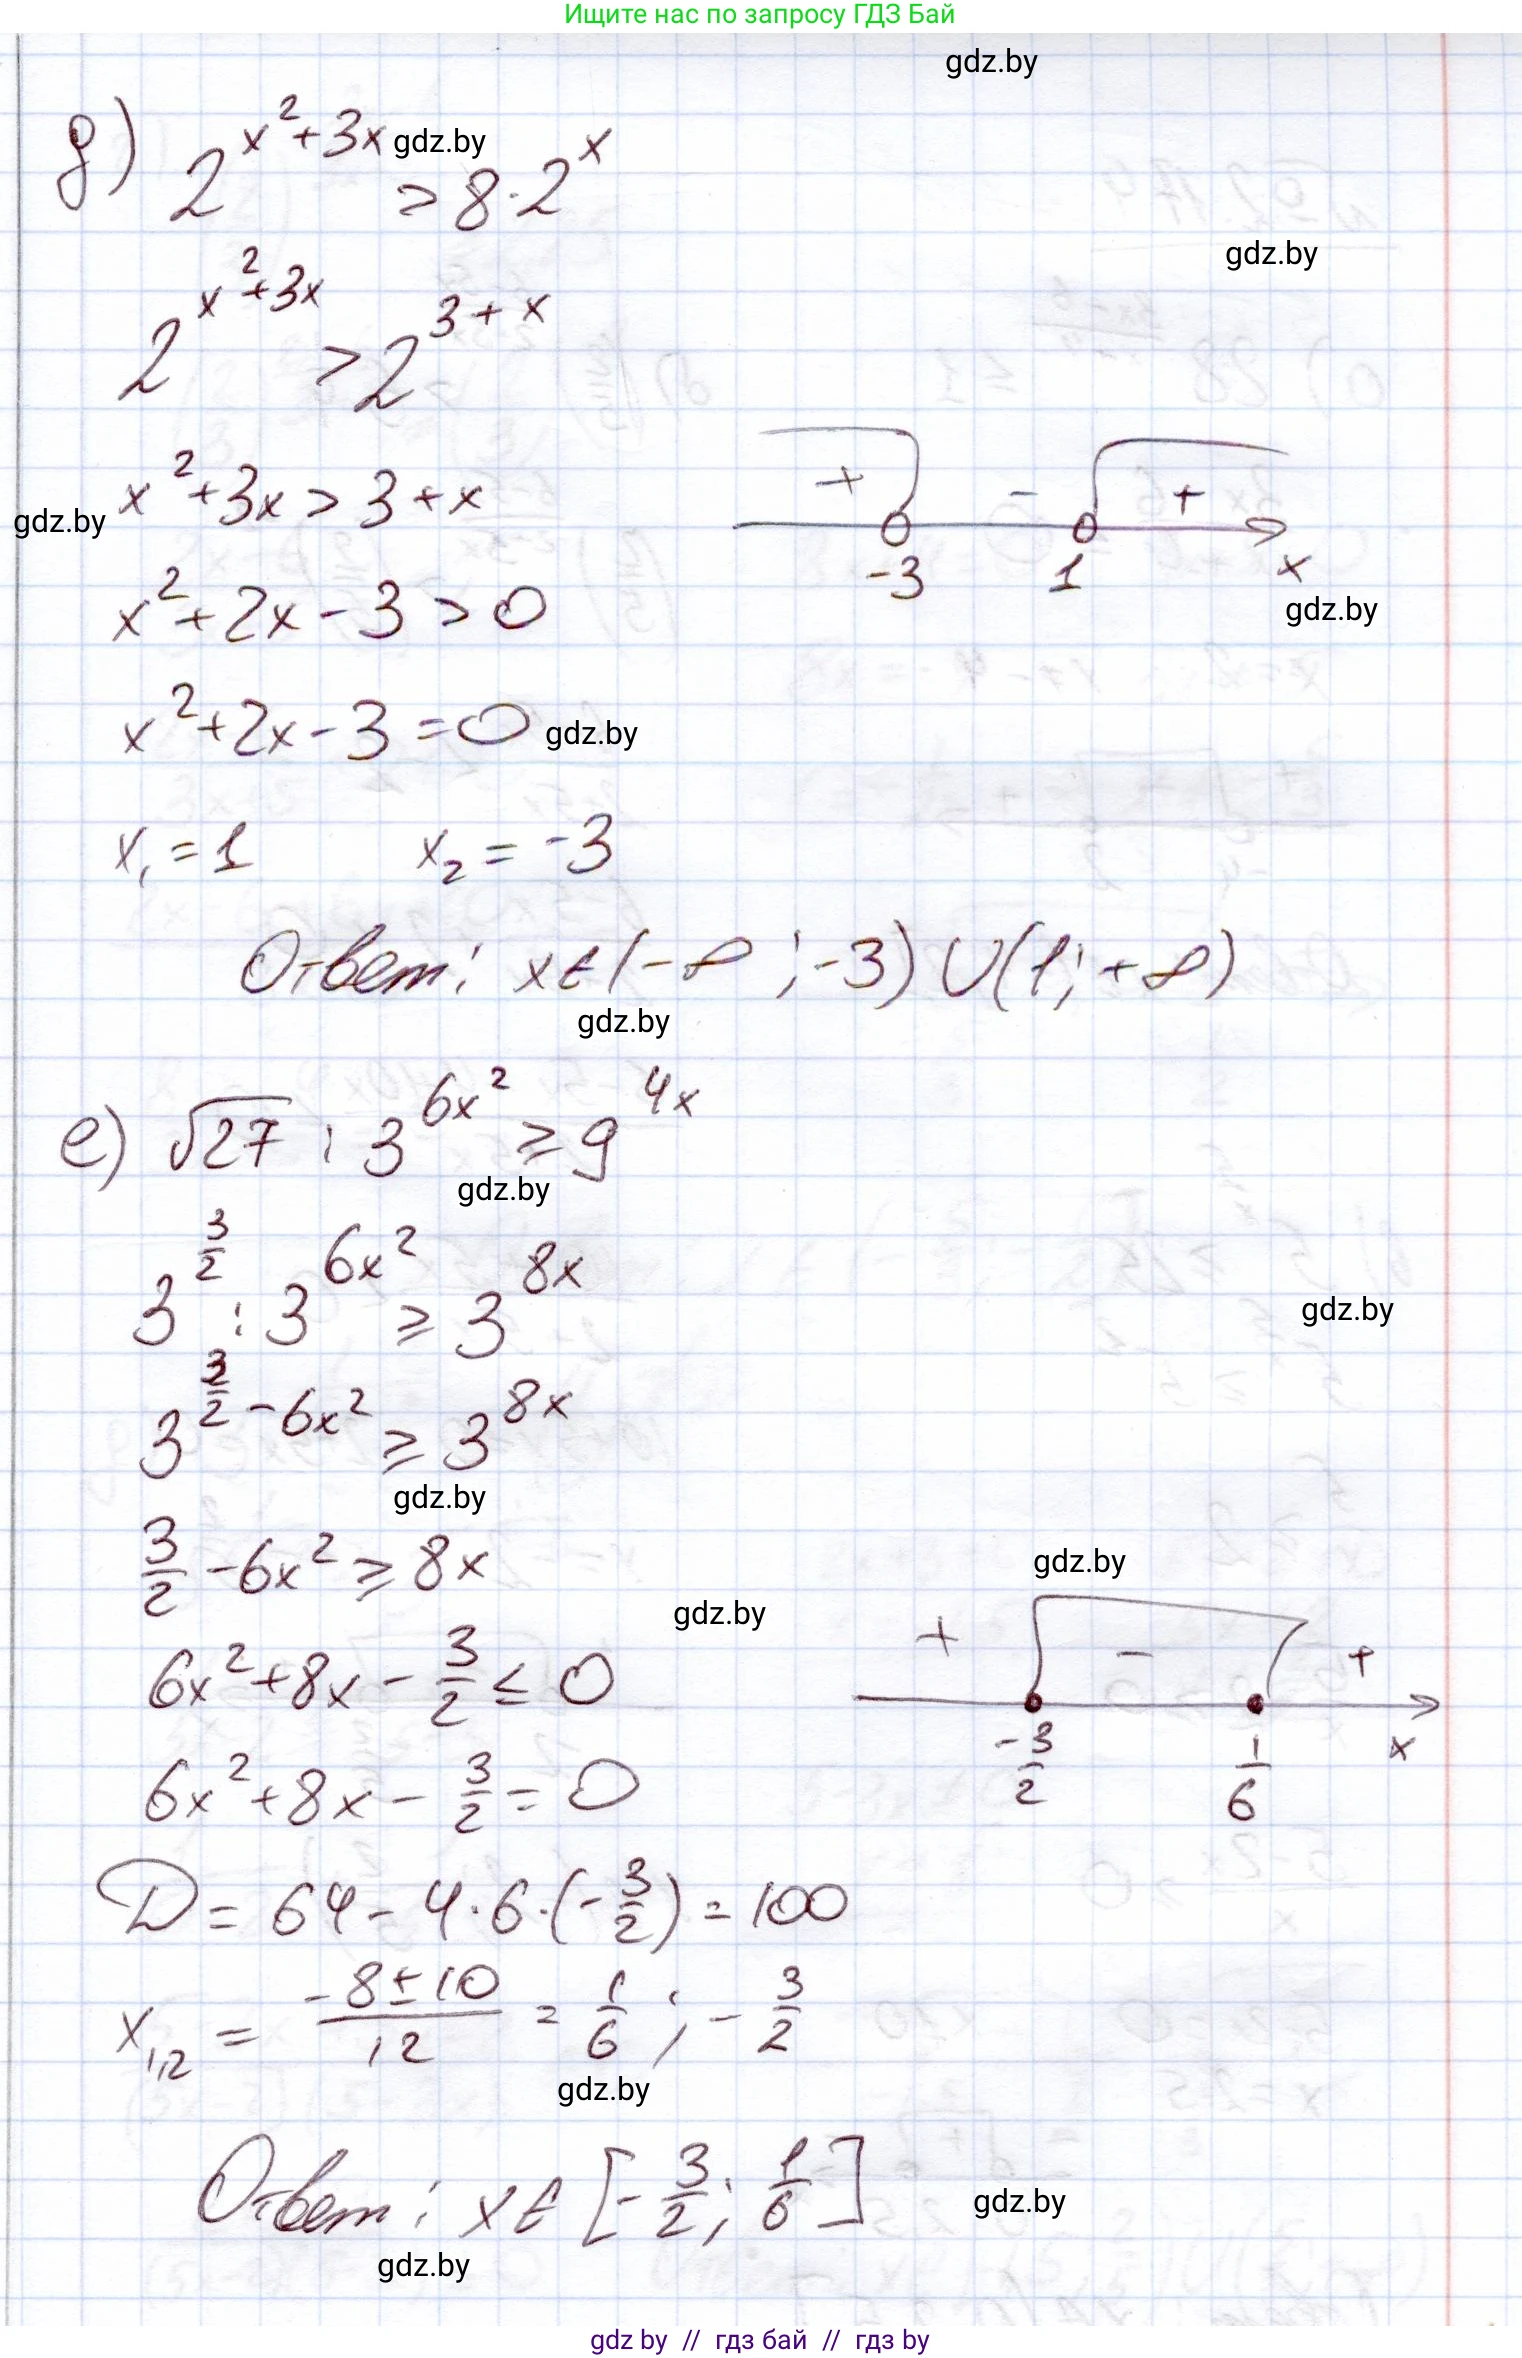 Ищите нас по запросу ГДЗ Бай
gdz.by
д) 2^(x²+3x) > 8·2^x
gdz.by
gdz.by
2^(x²+3x) > 2^(3+x)
x²+3x > 3+x
gdz.by
+ - +
-3 1 x
gdz.by
x²+2x-3 > 0
x²+2x-3=0
gdz.by
x₁=1 x₂=-3
Ответ: x∈(-∞;-3)∪(1;+∞)
gdz.by
е) √27 : 3^(6x²) ≥ 9^(4x)
gdz.by
3^(3/2) : 3^(6x²) ≥ 3^(8x)
gdz.by
3^(3/2-6x²) ≥ 3^(8x)
gdz.by
3/2-6x² ≥ 8x
gdz.by
gdz.by
6x²+8x-3/2 ≤ 0
+ - +
-3/2 1/6 x
6x²+8x-3/2=0
D=64-4·6·(-3/2)=100
x₁,₂=(-8±10)/12=1/6;-3/2
gdz.by
Ответ: x∈[-3/2;1/6]
gdz.by
gdz.by
gdz by // гдз бай // гдз by